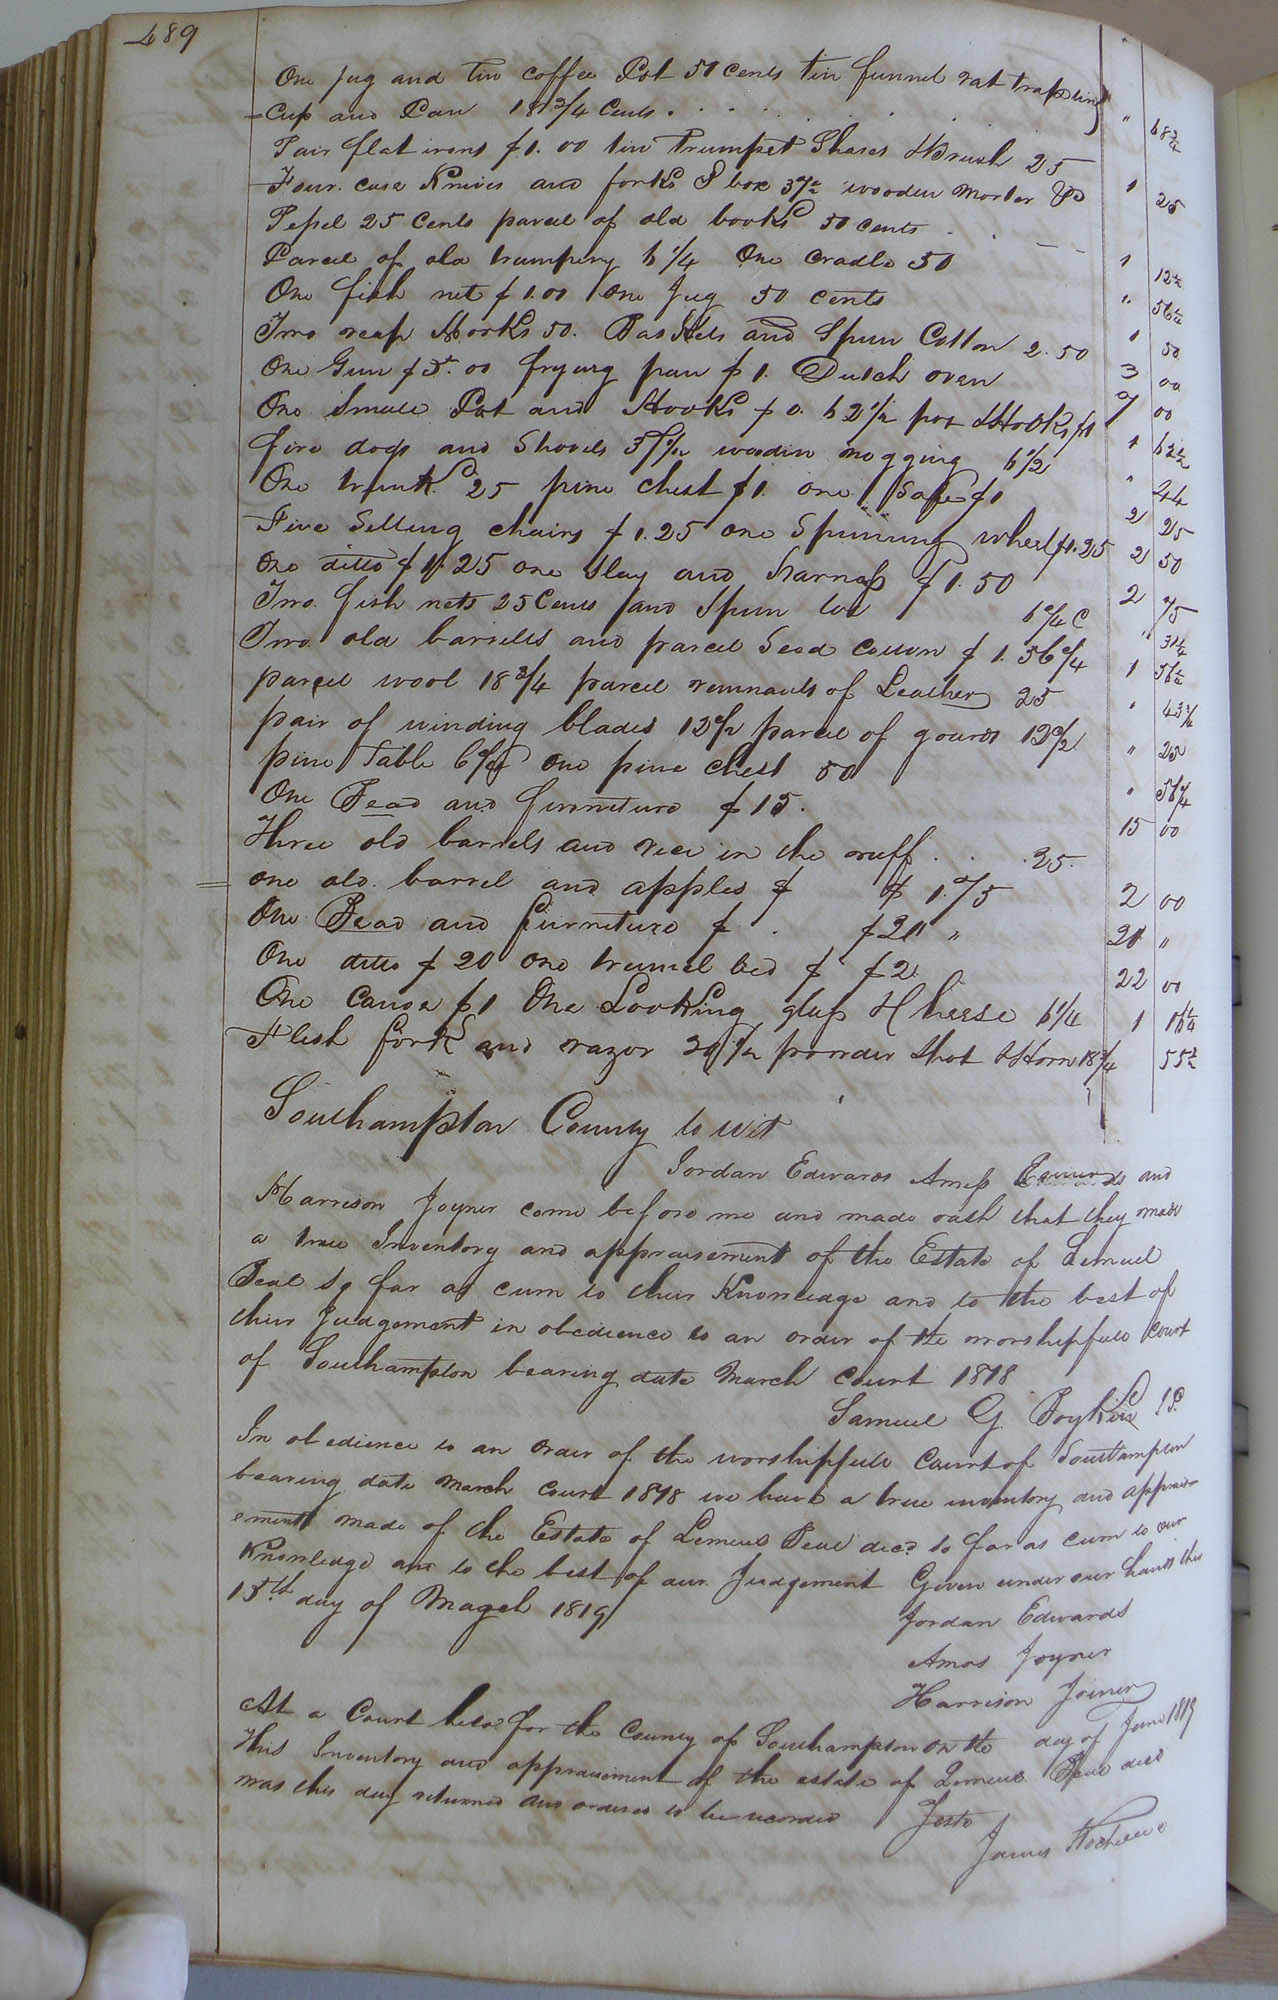 489
One Jug and tin coffee Pot 50 cents tin funnel rat trap tin
Cup and Pan 18 3/4 Cents . . . . . " 68 3/4
Pair flat irons $1.00 tin Trumpet Shares & Brush 25 1 25
Four case Knives and forks & box 37 1/2 wooden Morter &
Pepel 25 Cents parcel of old books 50 cents . . 1 12 1/2
Parcel of old trumpery 6 1/4 One cradle 50 " 56 1/4
One fish net $1.00 One Jug 50 cents 1 50
Two reap Hooks 50. Baskets and Spun Cotton 2.50 3 00
One Gun $5.00 frying pan $1. Dutch oven 7 00
One Small Pot and Hooks $0.62 1/2 pot & Hooks $1 1 62 1/2
fire dogs and Shovel 37 1/2 wooden nogging 6 1/2 " 44
One trunk 25 pine Chest $1. one Safe $1 2 25
Five Setting chairs $1.25 one Spinning wheel $1.25 2 50
One ditto $1.25 one Slay and harness $1.50 2 75
Two fish nets 25 Cents and Spun tow 6 1/4 C " 31 1/4
Two old barrells and parcel Seed cotton $1.56 1/4 1 56 1/4
parcel wool 18 3/4 parcel remnants of Leather 25 " 43 3/4
pair of winding blades 12 1/2 parcel of gourds 12 1/2 " 25
pine Table 6 1/4 one pine chest 50 " 56 1/4
One Bead and furniture $15. 15 00
Three old barrels and rice in the ruff . . . 25.
one old barrel and apples $ $1.75 2 00
One Bead and furniture $ . $20 " 20 "
One ditto $20 one trumel bed $ $2. 22 00
One Canoe $1 One Looking glass 6 1/4 1 16 1/4
Flesh fork and razor powder Shot & Horn 18 3/4 55 1/2
Southampton County to wit
Jordan Edwards Amos and
Harrison Joyner come before me and made oath that they made
a true Inventory and appraisement of the Estate of Lemuel
Beal so far as cum to their Knowledge and to the best of
their Judgement in obedience to an order of the worshipfull Court
of Southampton bearing date March Court 1818
Samuel G. Boykin JP.
In obedience to an order of the worshipfull Court of Southampton
bearing date March Court 1818 we have a true inventory and apprais
ement made of the Estate of Lemuel Beal decd so far as cum to our
Knowledge and to the best of our Judgement Given under our hands this
15th day of March 1819
Jordan Edwards
Amos Joyner
Harrison Joiner
At a Court held for the County of Southampton on the day of June 1819
This Inventory and appraisement of the estate of Lemuel Beal decd
was this day returned and ordered to be recorded Teste
James Rochelle